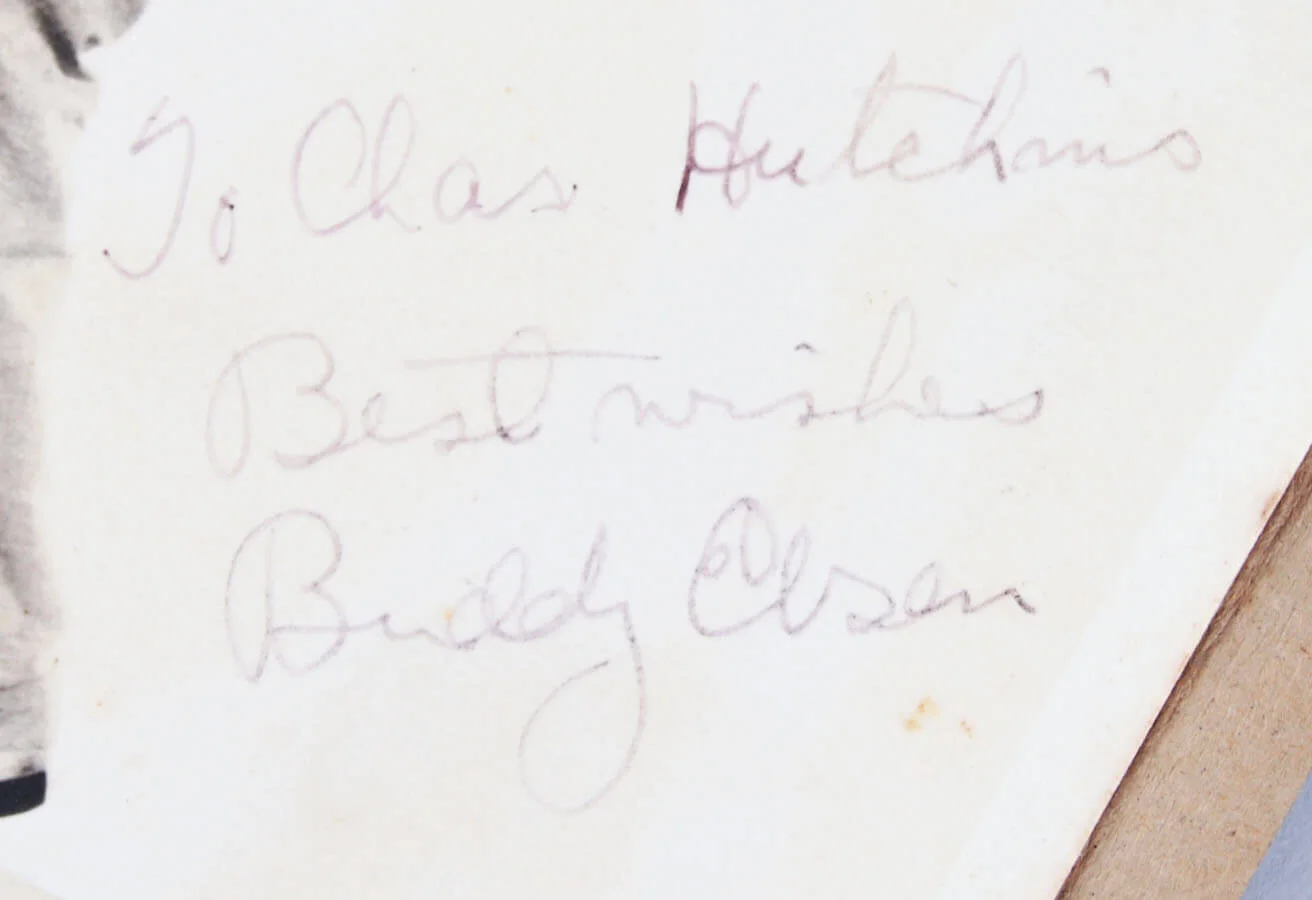 To Chas Hutchins
Best wishes
Buddy Ebsen